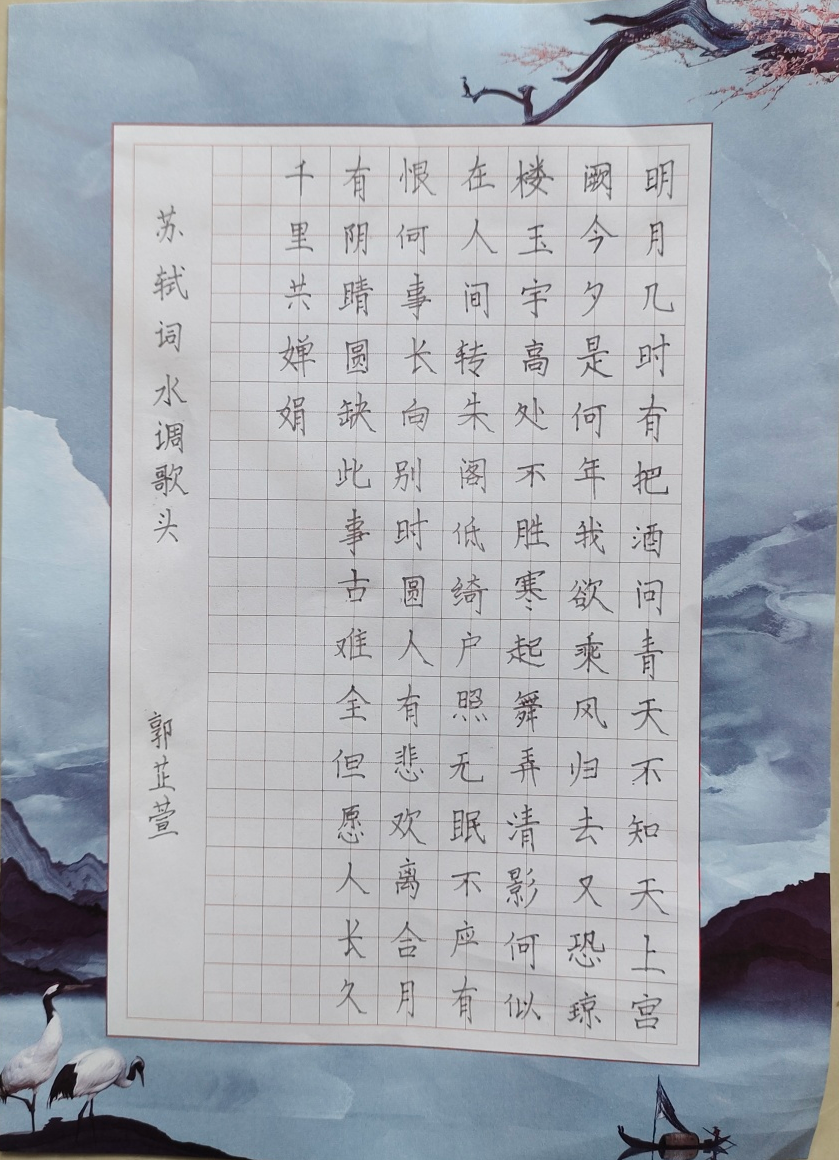 明月几时有把酒问青天不知天上宫
阙今夕是何年我欲乘风归去又恐琼
楼玉宇高处不胜寒起舞弄清影何似
在人间转朱阁低绮户照无眠不应有
恨何事长向别时圆人有悲欢离合月
有阴晴圆缺此事古难全但愿人长久
千里共婵娟
苏轼词水调歌头 郭芷萱